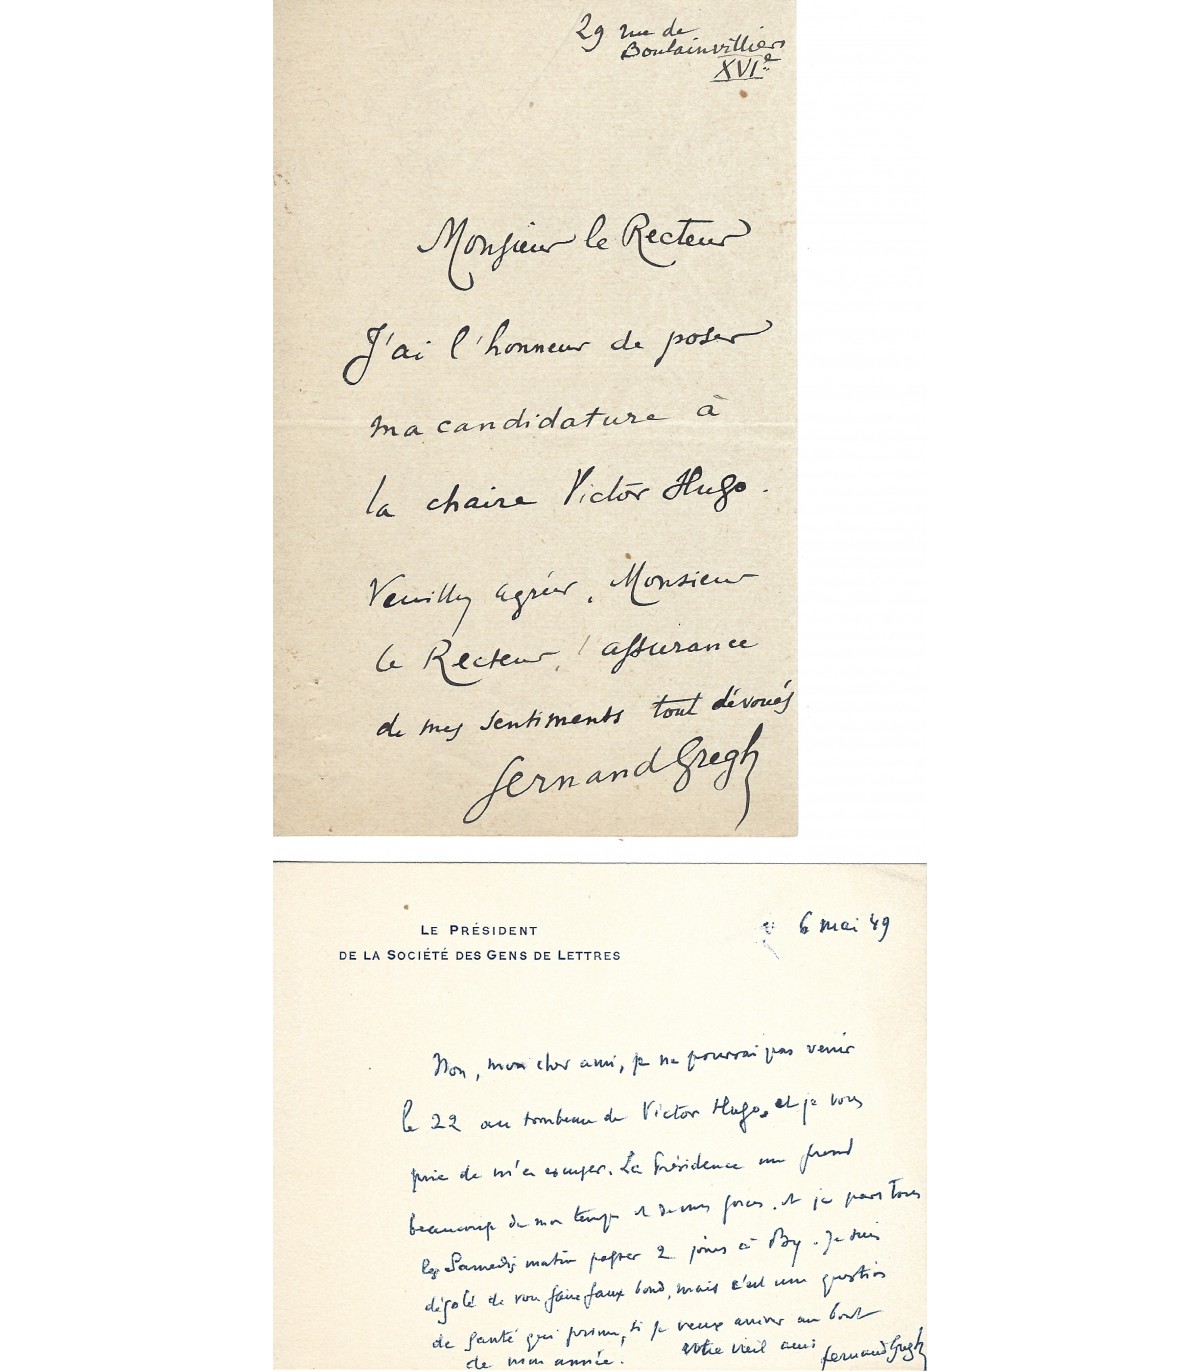 29 rue de
Boulainvilliers
XVIe
Monsieur le Recteur
J'ai l'honneur de poser
ma candidature à
la chaire Victor Hugo.
Veuillez agréer, Monsieur
le Recteur, l'assurance
de mes sentiments tout dévoués
Fernand Gregh
LE PRÉSIDENT
DE LA SOCIÉTÉ DES GENS DE LETTRES
6 mai 49
Non, mon cher ami, je ne pourrai pas venir
le 22 au tombeau de Victor Hugo, et je vous
prie de m'en excuser. La Présidence me prend
beaucoup de mon temps et de mes forces, et je pars tous
les Samedis matin passer 2 jours à By. Je suis
désolé de vous faire faux bond, mais c'est une question
de santé qui prime, si je veux arriver au bout
de mon année. votre vieil ami Fernand Gregh